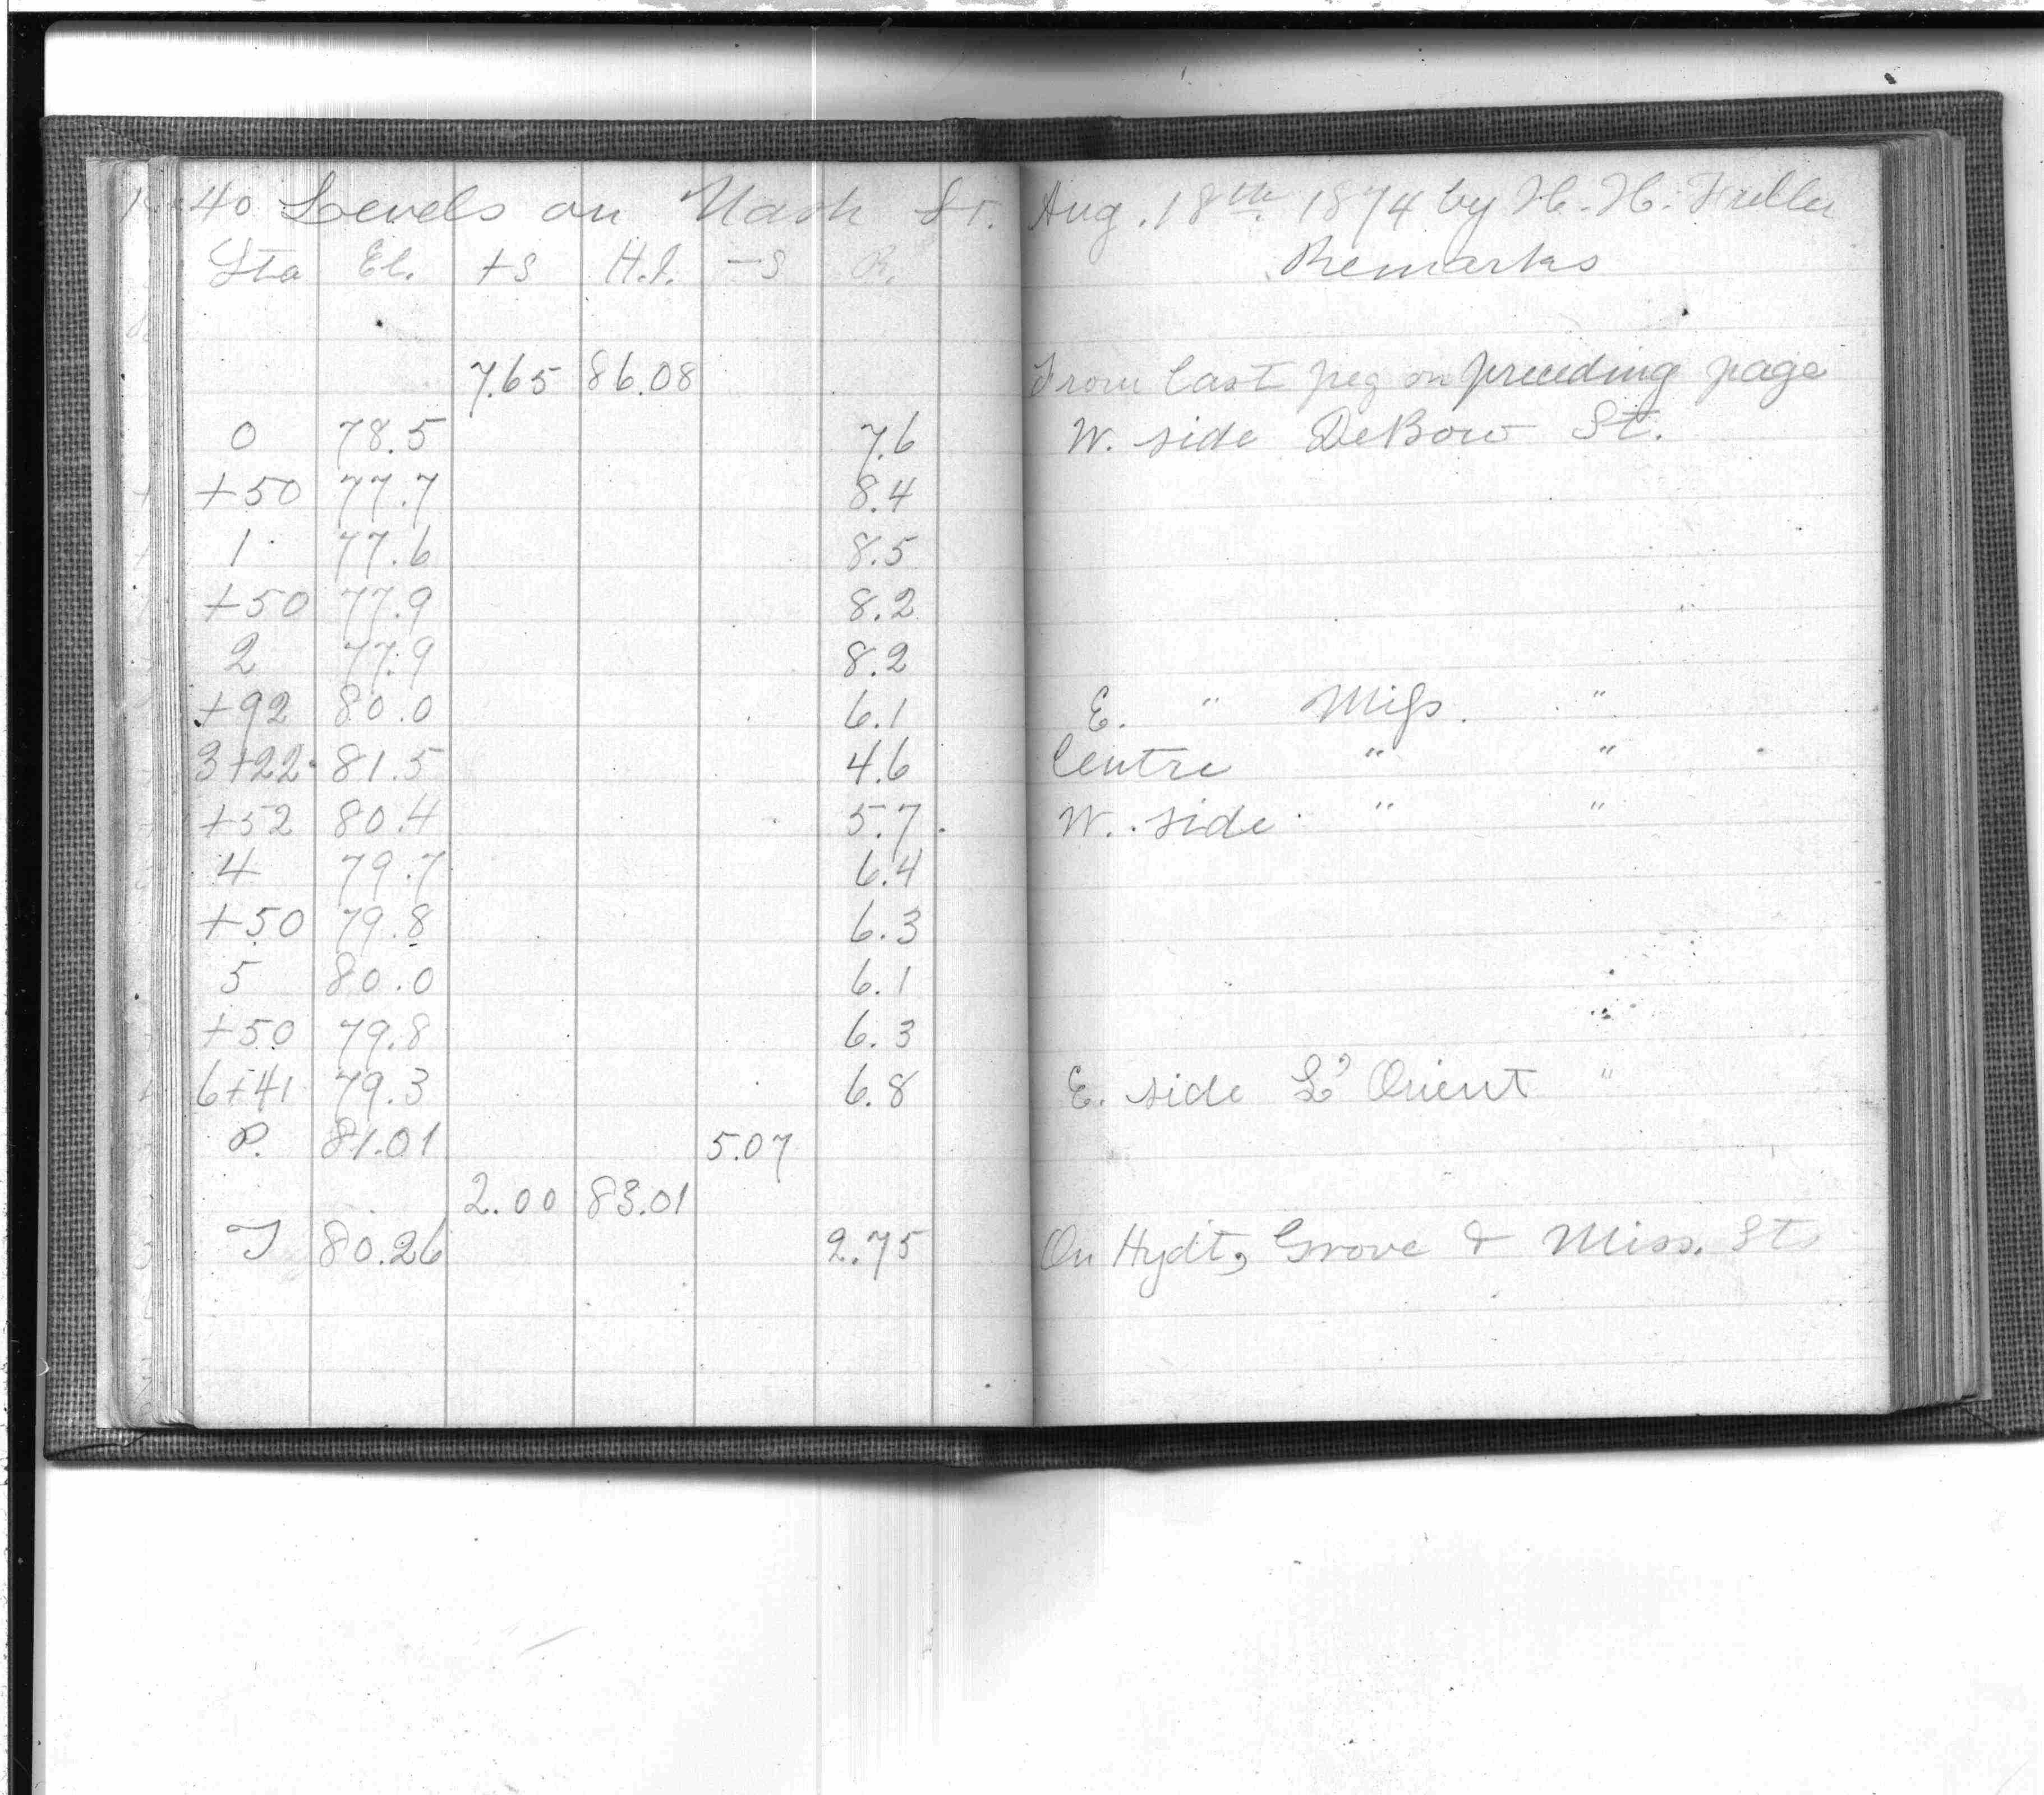 40 Levels on Nash St. Aug. 18th 1874 by H. H.
Sta El. +S H.I. -S R. Remarks
7.65 86.08 From last peg on preceding page
0 78.5 7.6 W. side DeBow St.
+50 77.7 8.4
1 77.6 8.5
+50 77.9 8.2
2 77.9 8.2
+92 80.0 6.1 E. " Miss. "
3+22 81.5 4.6 Centre " "
+52 80.4 5.7 W. side " "
4 79.7 6.4
+50 79.8 6.3
5 80.0 6.1
+50 79.8 6.3
6+41 79.3 6.8 E. side L'Orient "
P. 81.01 5.07
2.00 83.01
T 80.26 2.75 On Hydt, Grove & Miss. Sts